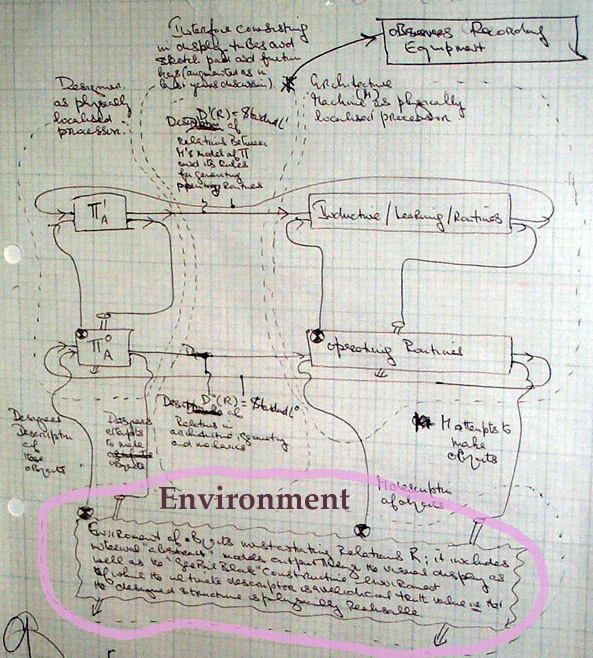 Interface consisting
in display tubes and
sketch pad and function
keys (augmented as in
later years discussion).
Observers Recording
Equipment
Designer
as physically
localised
processor.
Architecture
Machine (M) as physically
localised processor
D'(R) = Standard'
of
relations between
M's model of Π
and its rules
for generating
operating Routines
Π'A
Inductive/Learning/Routines
Π°A
Operating Routines
D°(R) = Standard°
of
Relations in
architecture, geometry
and mechanics
Designers
Description
of
these
objects
Designers
attempts
to make
objects
M attempts to
make
objects
M description
of objects
Environment
Environment of objects instantiating Relations R; it includes
internal "abstract" models output along the visual display as
well as the Constructive environment
of which the ultimate descriptor is a veridical truth value is or
the designed structure is physically realisable